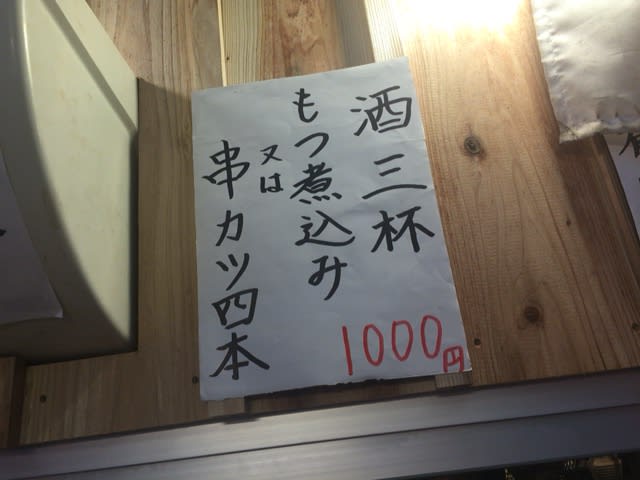 酒三杯
もつ煮込み
又は
串カツ四本
1000円